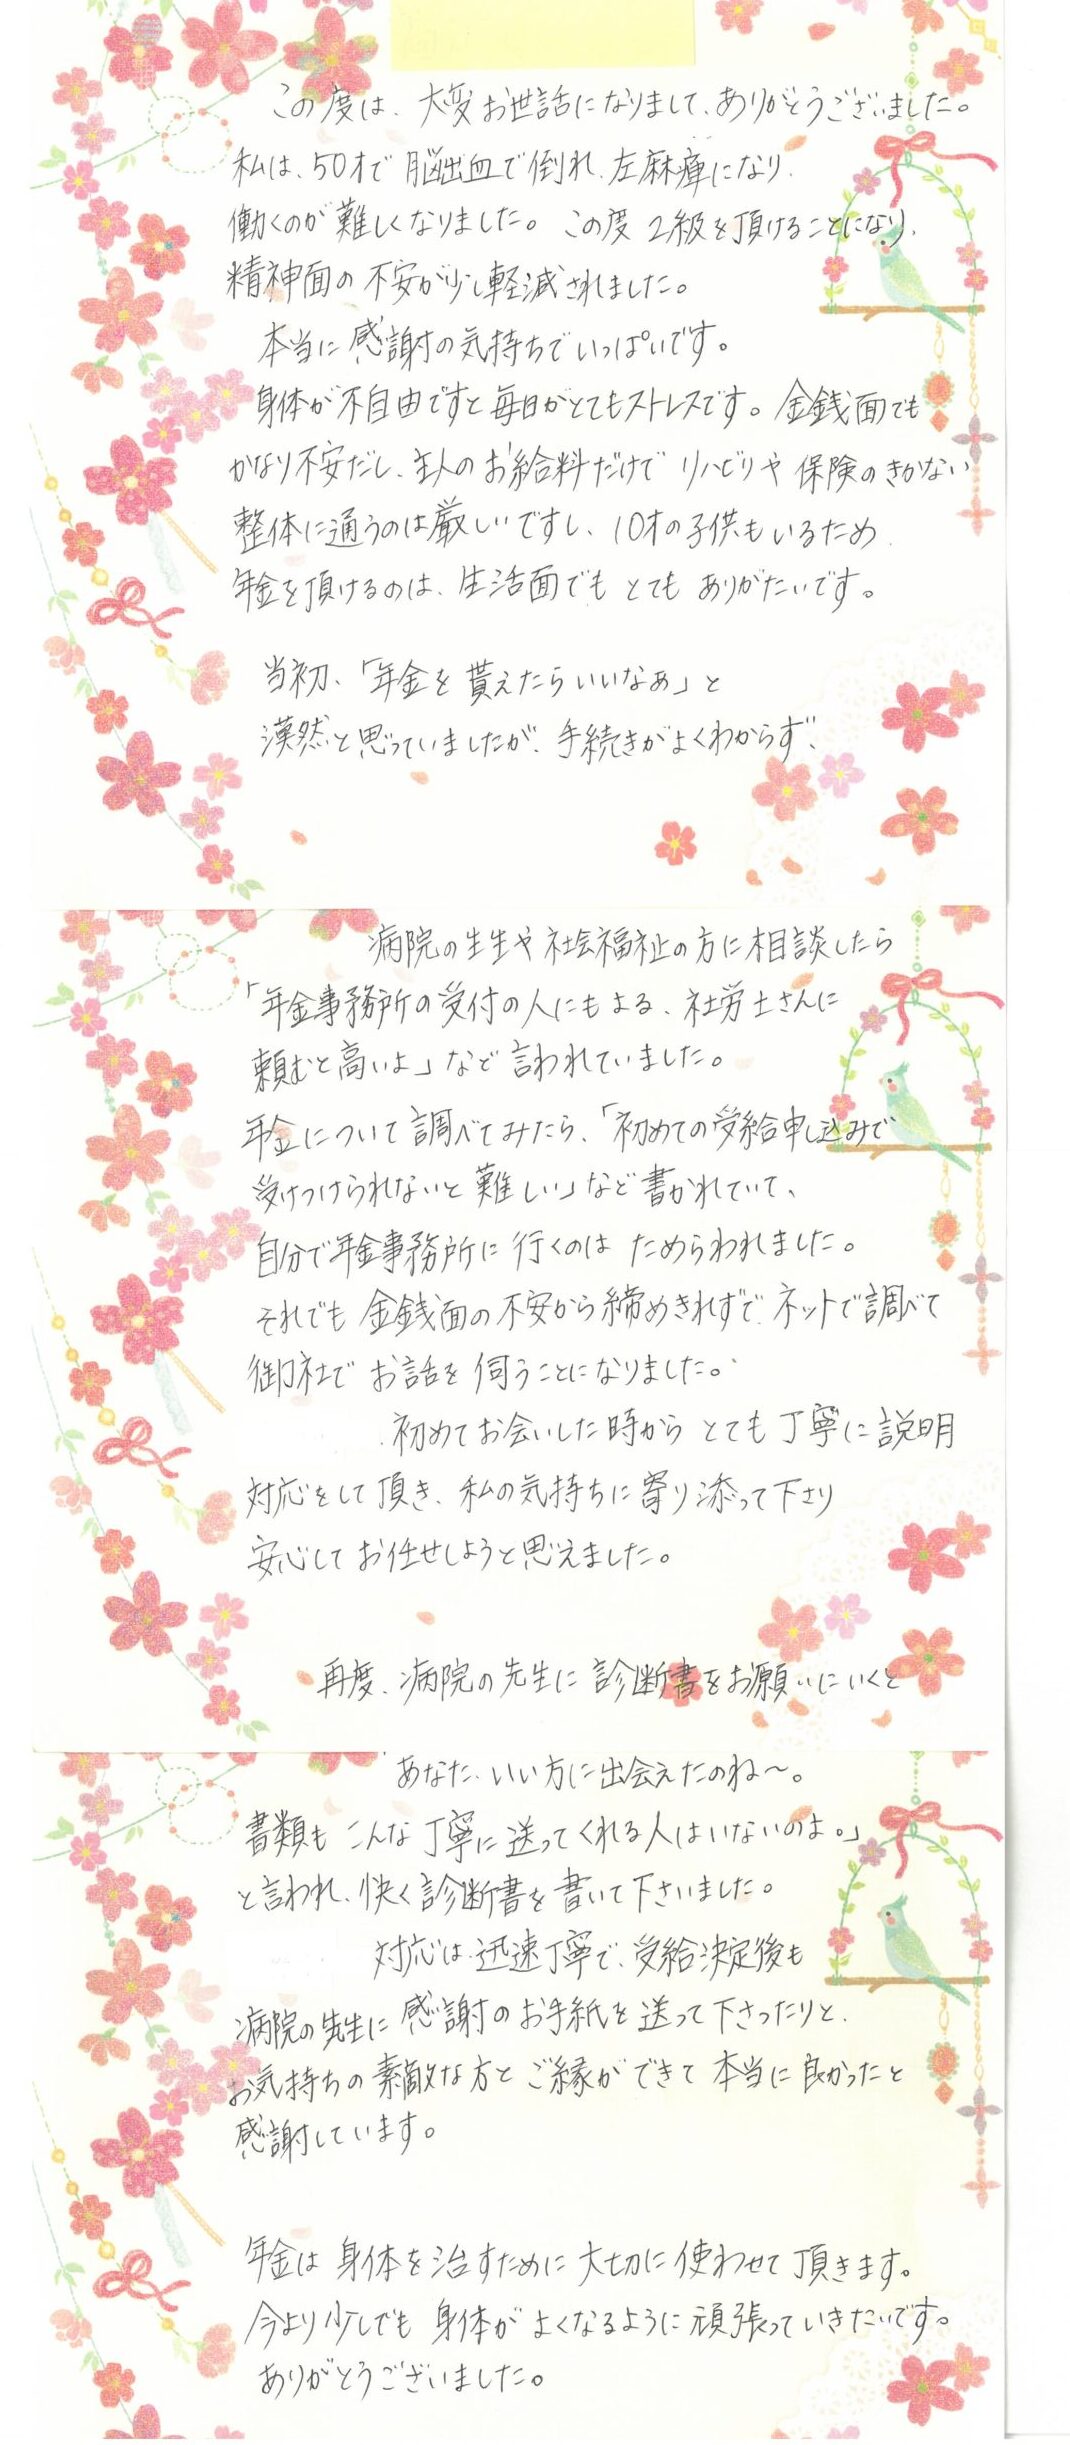 この度は、大変お世話になりまして、ありがとうございました。
私は、50才で脳出血で倒れ、左麻痺になり、
働くのが難しくなりました。この度2級を頂けることになり、
精神面の不安が少し軽減されました。
本当に感謝の気持ちでいっぱいです。
身体が不自由ですと毎日がとてもストレスです。金銭面でも
かなり不安だし、主人のお給料だけでリハビリや保険のきかない
整体に通うのは厳しいですし、10才の子供もいるため
年金を頂けるのは、生活面でもとてもありがたいです。
当初、「年金を貰えたらいいなぁ」と
漠然と思っていましたが、手続きがよくわからず、
病院の先生や社会福祉の方に相談したら
「年金事務所の受付の人にもよる、社労士さんに
頼むと高いよ」など言われていました。
年金について調べてみたら、「初めての受給申し込みで
受けつけられないと難しい」など書かれていて、
自分で年金事務所に行くのはためらわれました。
それでも金銭面の不安から締めきれずで、ネットで調べて
御社でお話を伺うことになりました。
初めてお会いした時からとても丁寧に説明
対応をして頂き、私の気持ちに寄り添って下さり
安心してお任せしようと思えました。
再度、病院の先生に診断書をお願いにいくと
「あなた、いい方に出会えたのね〜。
書類もこんな丁寧に送ってくれる人はいないのよ。」
と言われ、快く診断書を書いて下さいました。
対応は迅速丁寧で、受給決定後も
病院の先生に感謝のお手紙を送って下さったりと、
お気持ちの素敵な方とご縁ができて本当に良かったと
感謝しています。
年金は身体を治すために大切に使わせて頂きます。
今より少しでも身体がよくなるように頑張っていきたいです。
ありがとうございました。